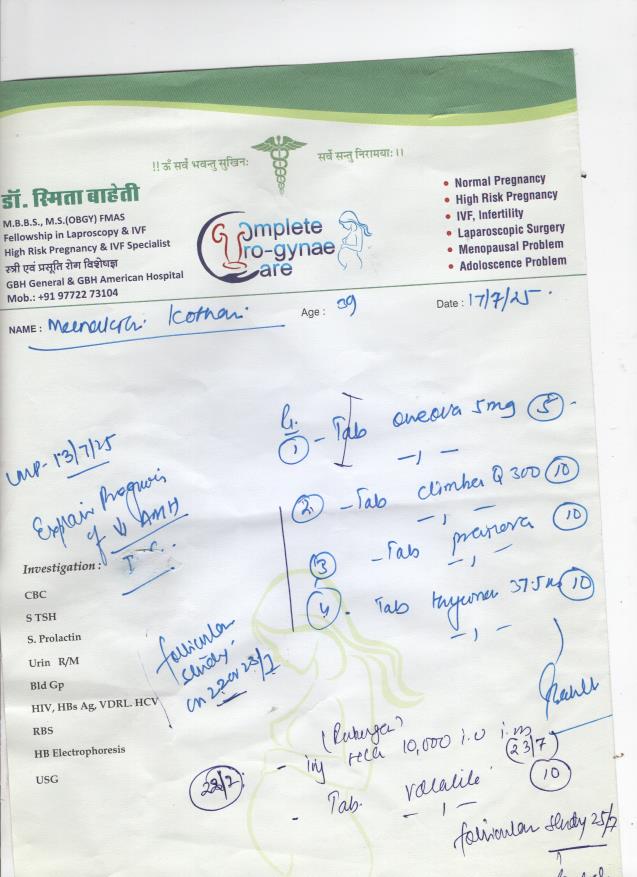 !! ॐ सर्वे भवन्तु सुखिनः सर्वे सन्तु निरामयाः ।।
डॉ. स्मिता बाहेती
M.B.B.S., M.S.(OBGY) FMAS
Fellowship in Laproscopy & IVF
High Risk Pregnancy & IVF Specialist
स्त्री एवं प्रसूति रोग विशेषज्ञ
GBH General & GBH American Hospital
Mob.: +91 97722 73104
Complete
Uro-gynae
Care
• Normal Pregnancy
• High Risk Pregnancy
• IVF, Infertility
• Laparoscopic Surgery
• Menopausal Problem
• Adoloscence Problem
NAME : Meenakshi Kothari Age : 39 Date : 17/7/25.
LMP - 13/7/25
Explain Prognosis
of ↓↓ AMH
1 - Tab 5mg 5
2. - Tab Q 300 10
3 - Tab 10
4. Tab 37.5 10
Investigation :
CBC
S TSH
S. Prolactin
Urin R/M
Bld Gp
HIV, HBs Ag, VDRL. HCV
RBS
HB Electrophoresis
USG
follicular
study
on 22 or 23/7
22/7
- Inj HCG 10,000 i.u i.m 23/7
- Tab. 10
follicular study 25/7